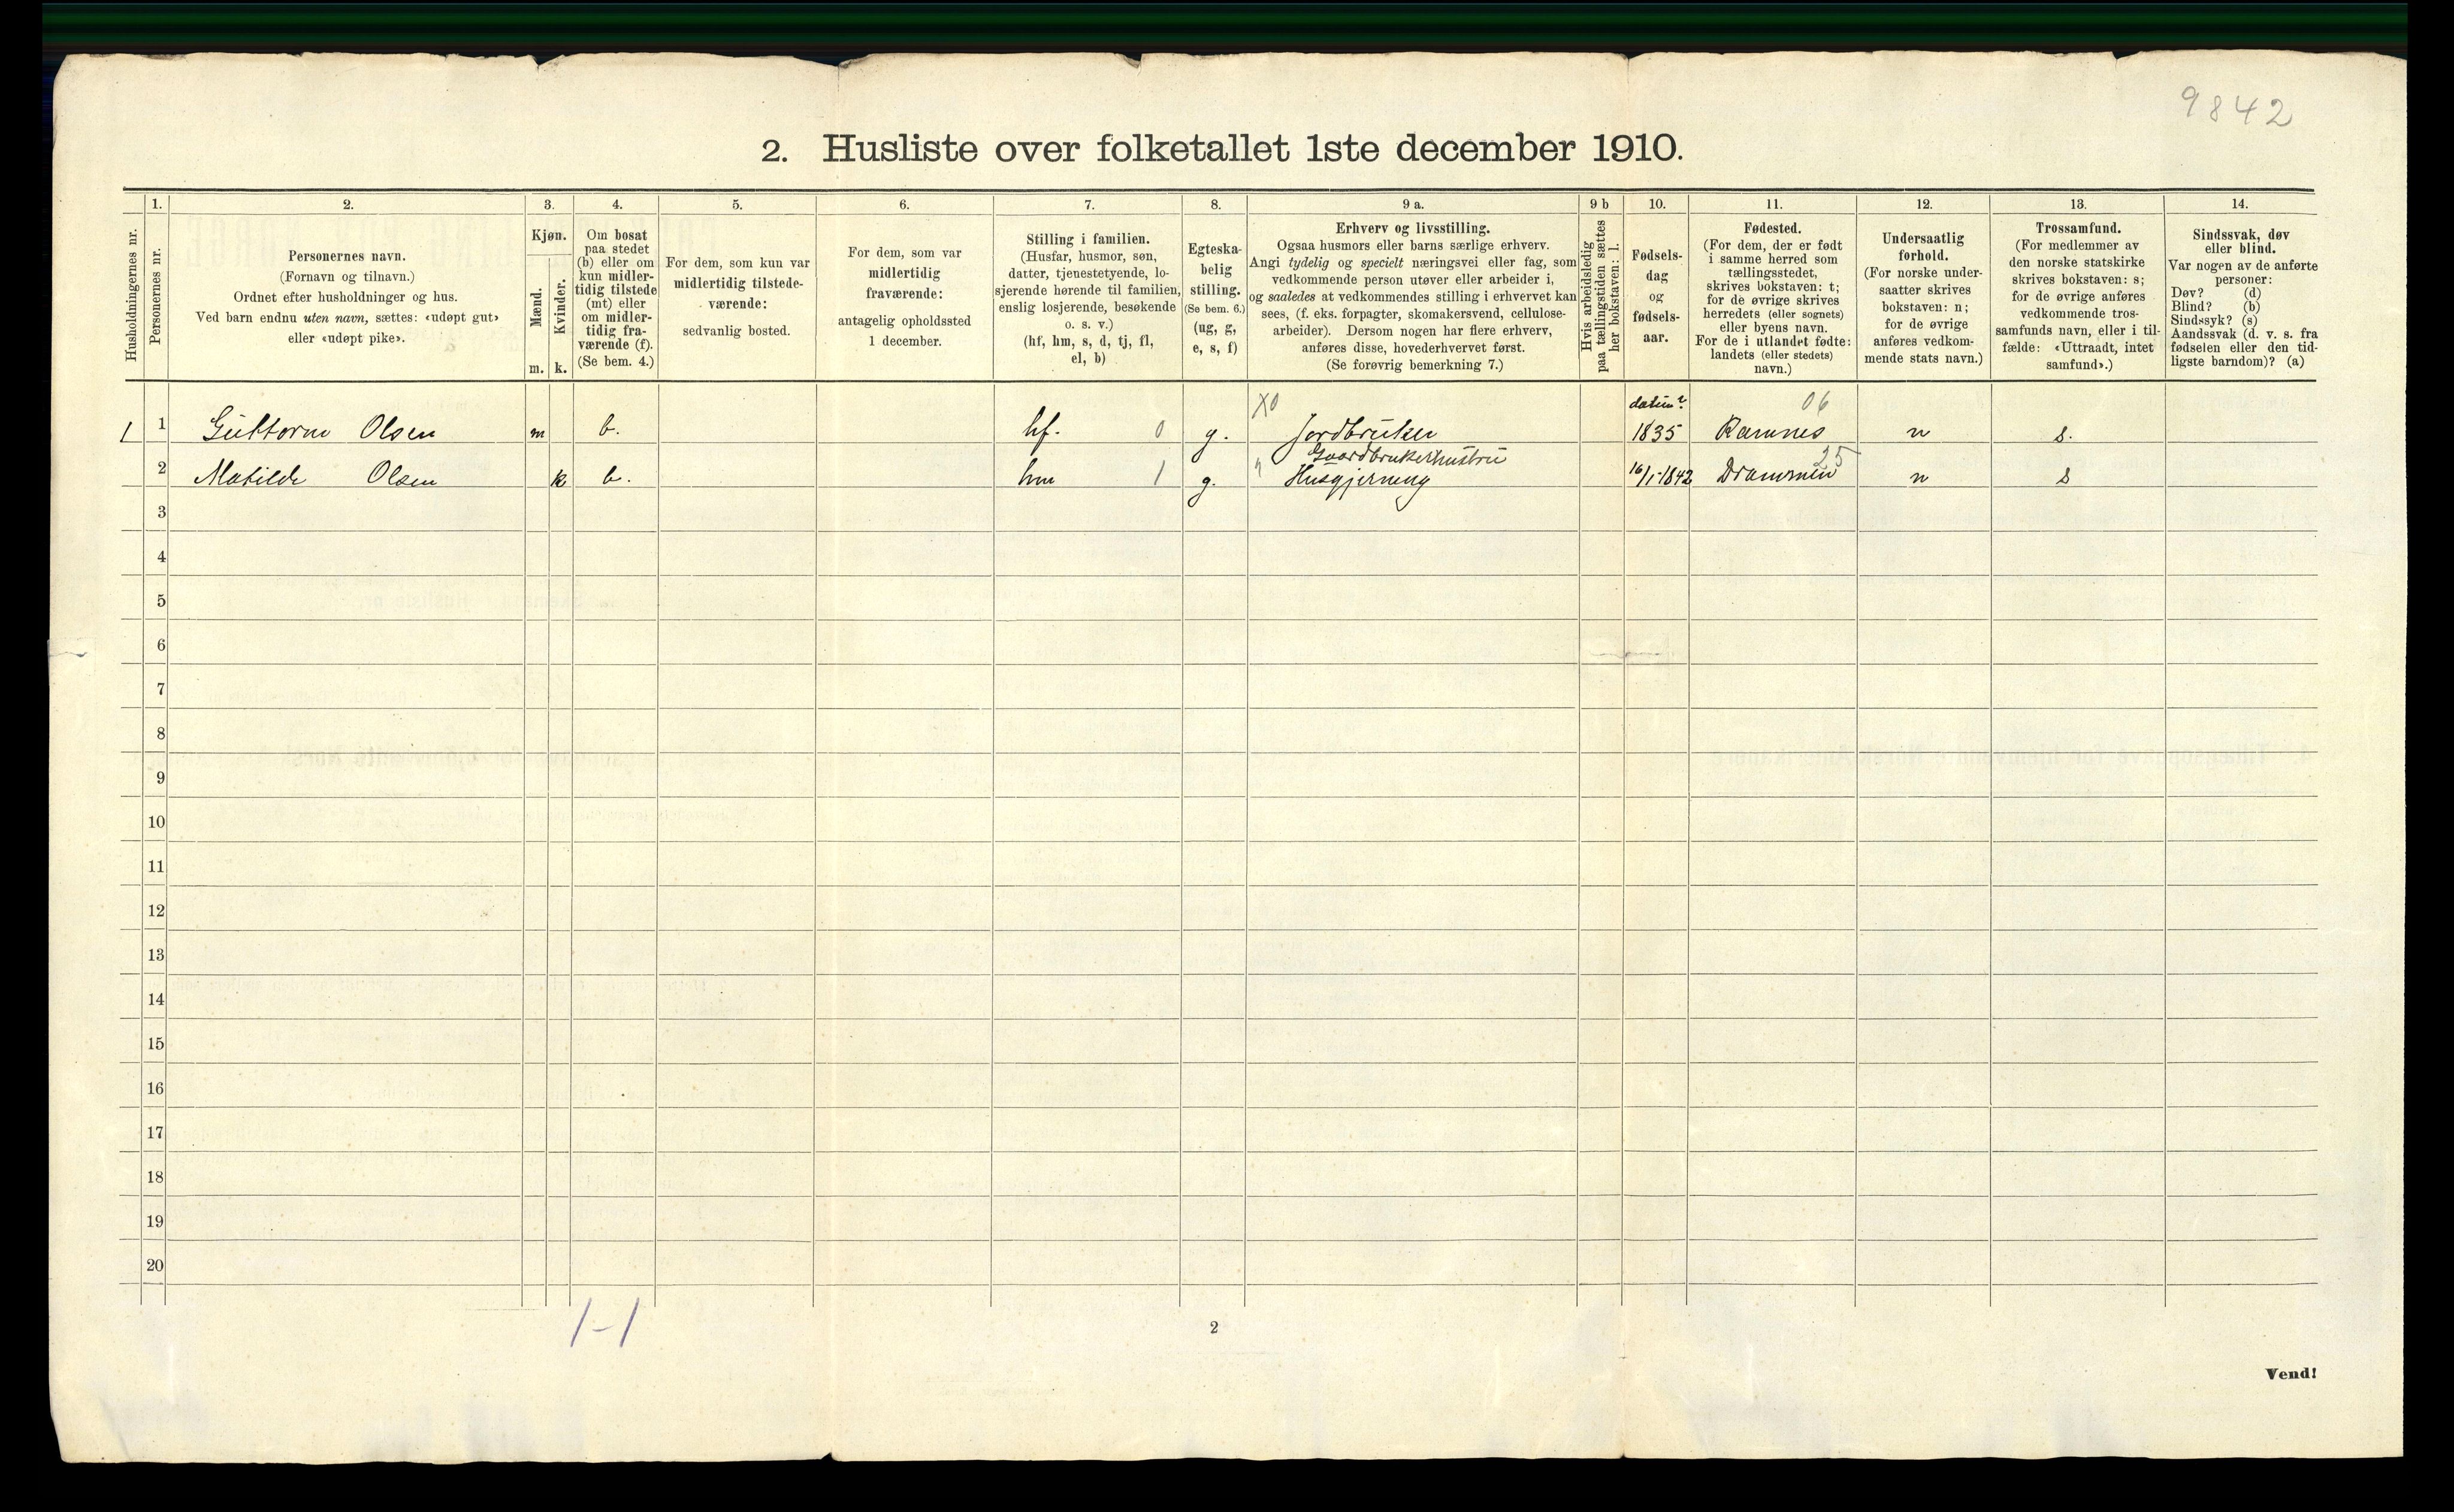 9842
2. Husliste over folketallet 1ste december 1910.
1. 2. 3. 4. 5. 6. 7. 8. 9 a. 9 b 10. 11. 12. 13. 14.
Husholdningernes nr.
Personernes nr.
Personernes navn.
(Fornavn og tilnavn.)
Ordnet efter husholdninger og hus.
Ved barn endnu uten navn, sættes: «udøpt gut»
eller «udøpt pike».
Kjøn.
Mænd.
Kvinder.
m. k.
Om bosat
paa stedet
(b) eller om
kun midler-
tidig tilstede
(mt) eller
om midler-
tidig fra-
værende (f).
(Se bem. 4.)
For dem, som kun var
midlertidig tilstede-
værende:
sedvanlig bosted.
For dem, som var
midlertidig
fraværende:
antagelig opholdssted
1 december.
Stilling i familien.
(Husfar, husmor, søn,
datter, tjenestetyende, lo-
sjerende hørende til familien,
enslig losjerende, besøkende
o. s. v.)
(hf, hm, s, d, tj, fl,
el, b)
Egteska-
belig
stilling.
(Se bem. 6.)
(ug, g,
e, s, f)
Erhverv og livsstilling.
Ogsaa husmors eller barns særlige erhverv.
Angi tydelig og specielt næringsvei eller fag, som
vedkommende person utøver eller arbeider i,
og saaledes at vedkommendes stilling i erhvervet kan
sees, (f. eks. forpagter, skomakersvend, cellulose-
arbeider). Dersom nogen har flere erhverv,
anføres disse, hovederhvervet først.
(Se forøvrig bemerkning 7.)
Hvis arbeidsledig
paa tællingstiden sættes
her bokstaven: l.
Fødsels-
dag
og
fødsels-
aar.
Fødested.
(For dem, der er født
i samme herred som
tællingsstedet,
skrives bokstaven: t;
for de øvrige skrives
herredets (eller sognets)
eller byens navn.
For de i utlandet fødte:
landets (eller stedets)
navn.)
Undersaatlig
forhold.
(For norske under-
saatter skrives
bokstaven: n;
for de øvrige
anføres vedkom-
mende stats navn.)
Trossamfund.
(For medlemmer av
den norske statskirke
skrives bokstaven: s;
for de øvrige anføres
vedkommende tros-
samfunds navn, eller i til-
fælde: «Uttraadt, intet
samfund».)
Sindssvak, døv
eller blind.
Var nogen av de anførte
personer:
Døv? (d)
Blind? (b)
Sindssyk? (s)
Aandssvak (d. v. s. fra
fødselen eller den tid-
ligste barndom)? (a)
X0 datum? 06
1 1 Guttorm Olsen m b. hf. 0 g. Jordbruker 1835 Ramnes n s.
Gaardbrukerhustru 25
2 Matilde Olsen k b. hm 1 g. Husgjerning 16/1-1842 Drammen n s
3
4
5
6
7
8
9
10
11
12
13
14
15
16
17
18
19
20
1-1
2
Vend!